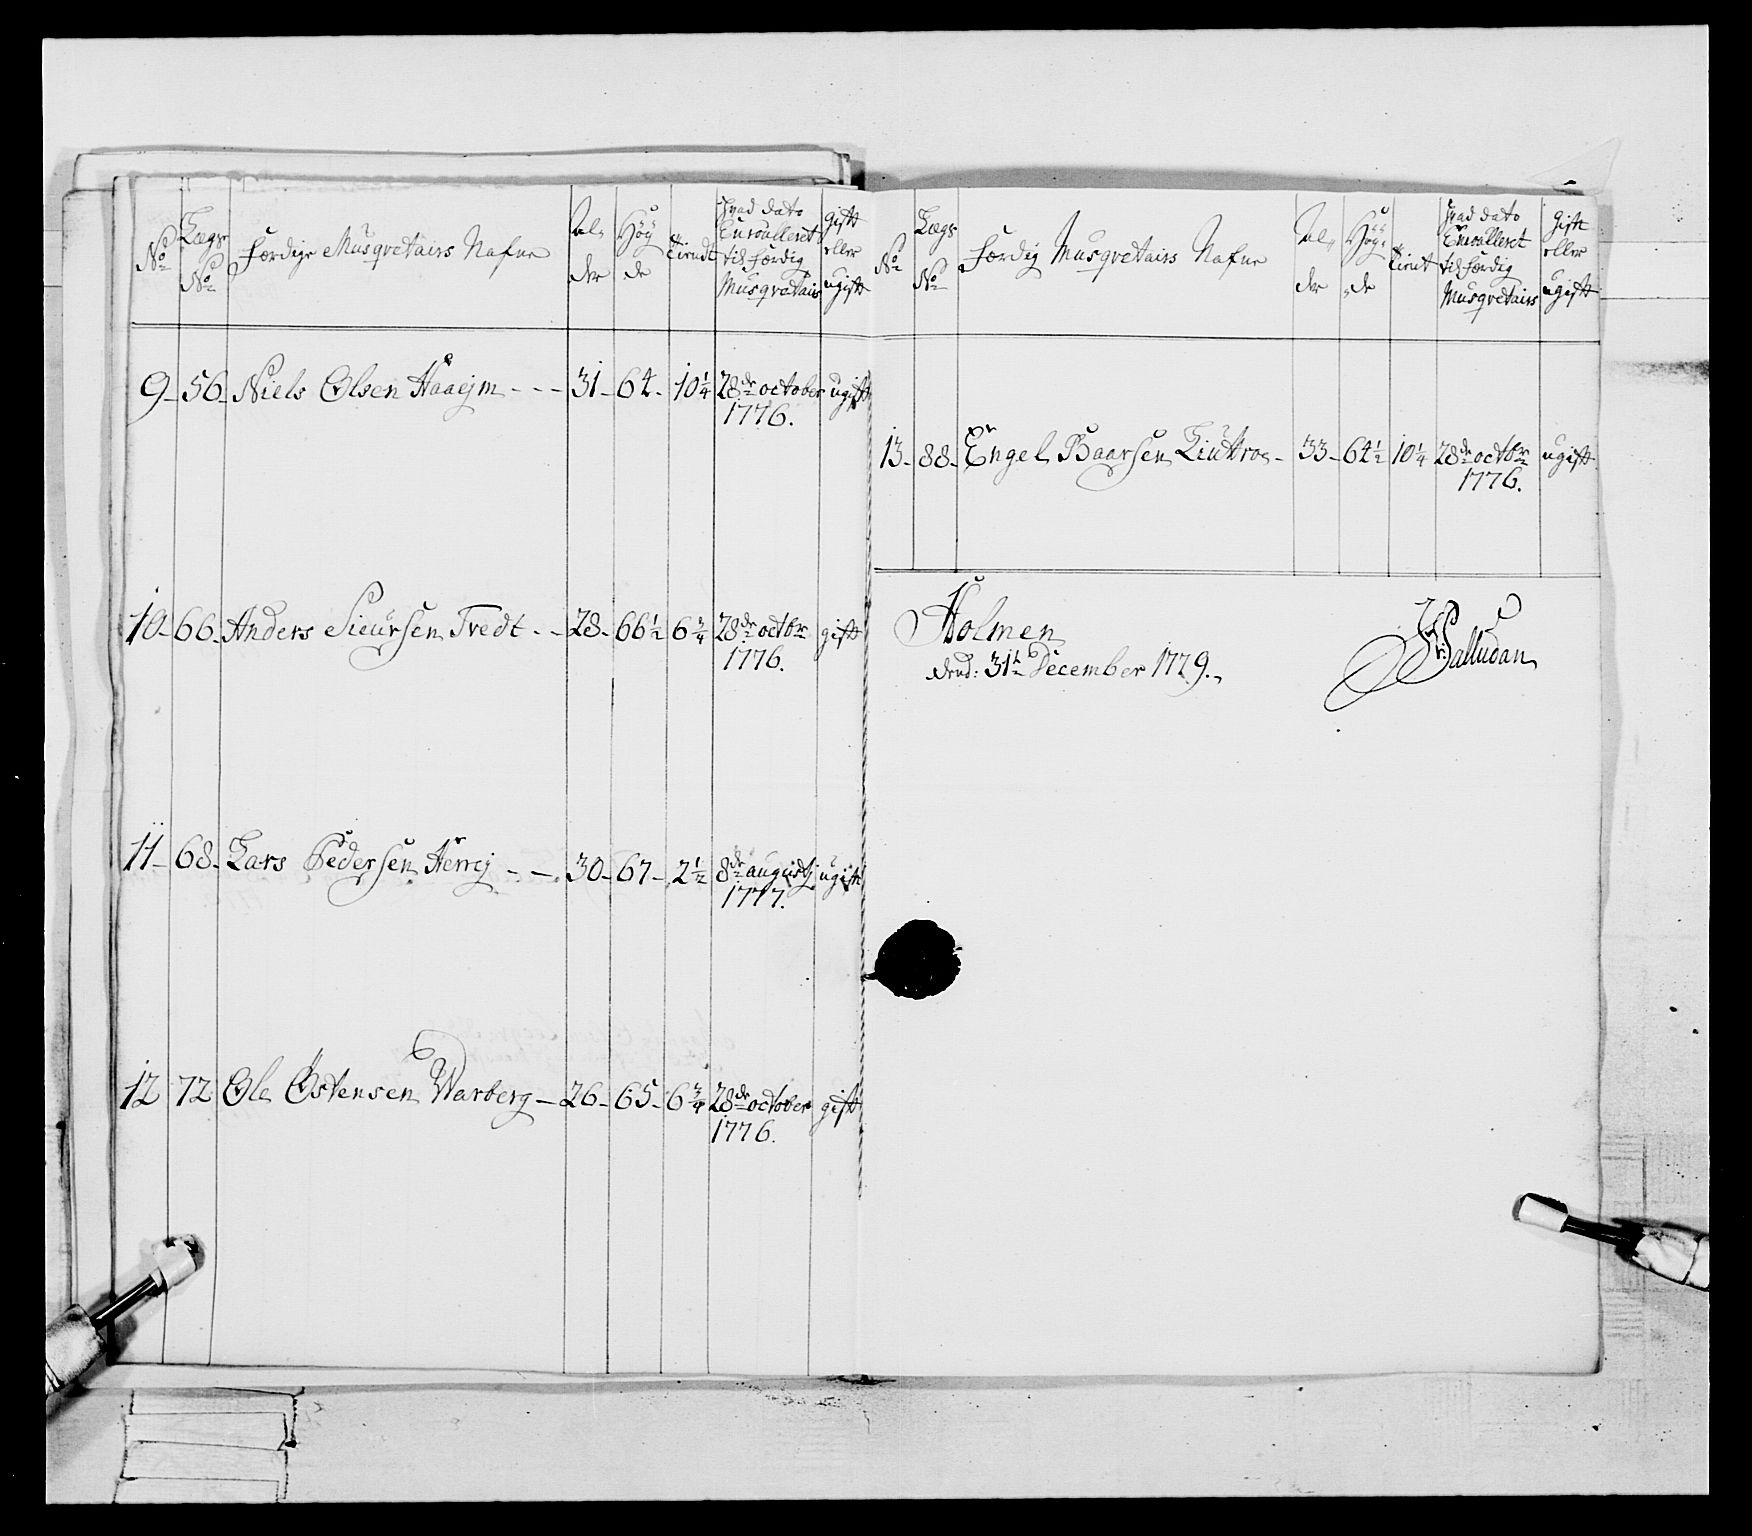 No
Lægs No
Færdige Musqvetairs Nafne
Al,, der
Høy de
tient
hvad dato Enroulleret til færdig Musqvetairs
gift eller ugift
9 - 56 - Niels Olsen Haaejm - - - 31 - 64 - 10 1/4 28de october 1776. ugift
10 - 66 - Anders Sieursen Tvedt - - 28 - 66 1/2 6 3/4 28de octbr 1776. gift
11 - 68 - Lars Pedersen Herrej - - 30 - 67 - 2 1/2 8de augustj 1777. ugift
12 72 Ole Østensen Warberg - 26 - 65 - 6 3/4 28de october 1776. gift
No
Lægs No
Færdig Musqvetairs Nafne
Al,, der
Høy,, de
tient
hvad dato Enroulleret til færdig Musqvetairs
gift eller ugift
13 - 88 - Engel Baarsen - 33 - 64 1/2 10 1/4 28de octbr 1776. ugift
Holmen
dend: 31te December 1779.
Salludan